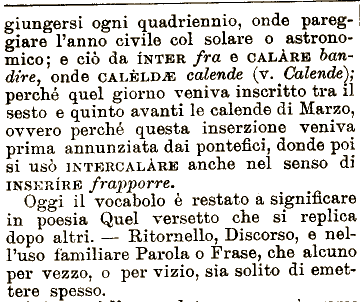 giungersi ogni quadriennio, onde pareg-
giare l'anno civile col solare o astrono-
mico; e ciò da ÍNTER fra e CALÀRE ban-
dire, onde CALÈLDÆ calende (v. Calende);
perché quel giorno veniva inscritto tra il
sesto e quinto avanti le calende di Marzo,
ovvero perché questa inserzione veniva
prima annunziata dai pontefici, donde poi
si usò INTERCALÀRE anche nel senso di
INSERÍRE frapporre.
Oggi il vocabolo è restato a significare
in poesia Quel versetto che si replica
dopo altri. — Ritornello, Discorso, e nel-
l'uso familiare Parola o Frase, che alcuno
per vezzo, o per vizio, sia solito di emet-
tere spesso.